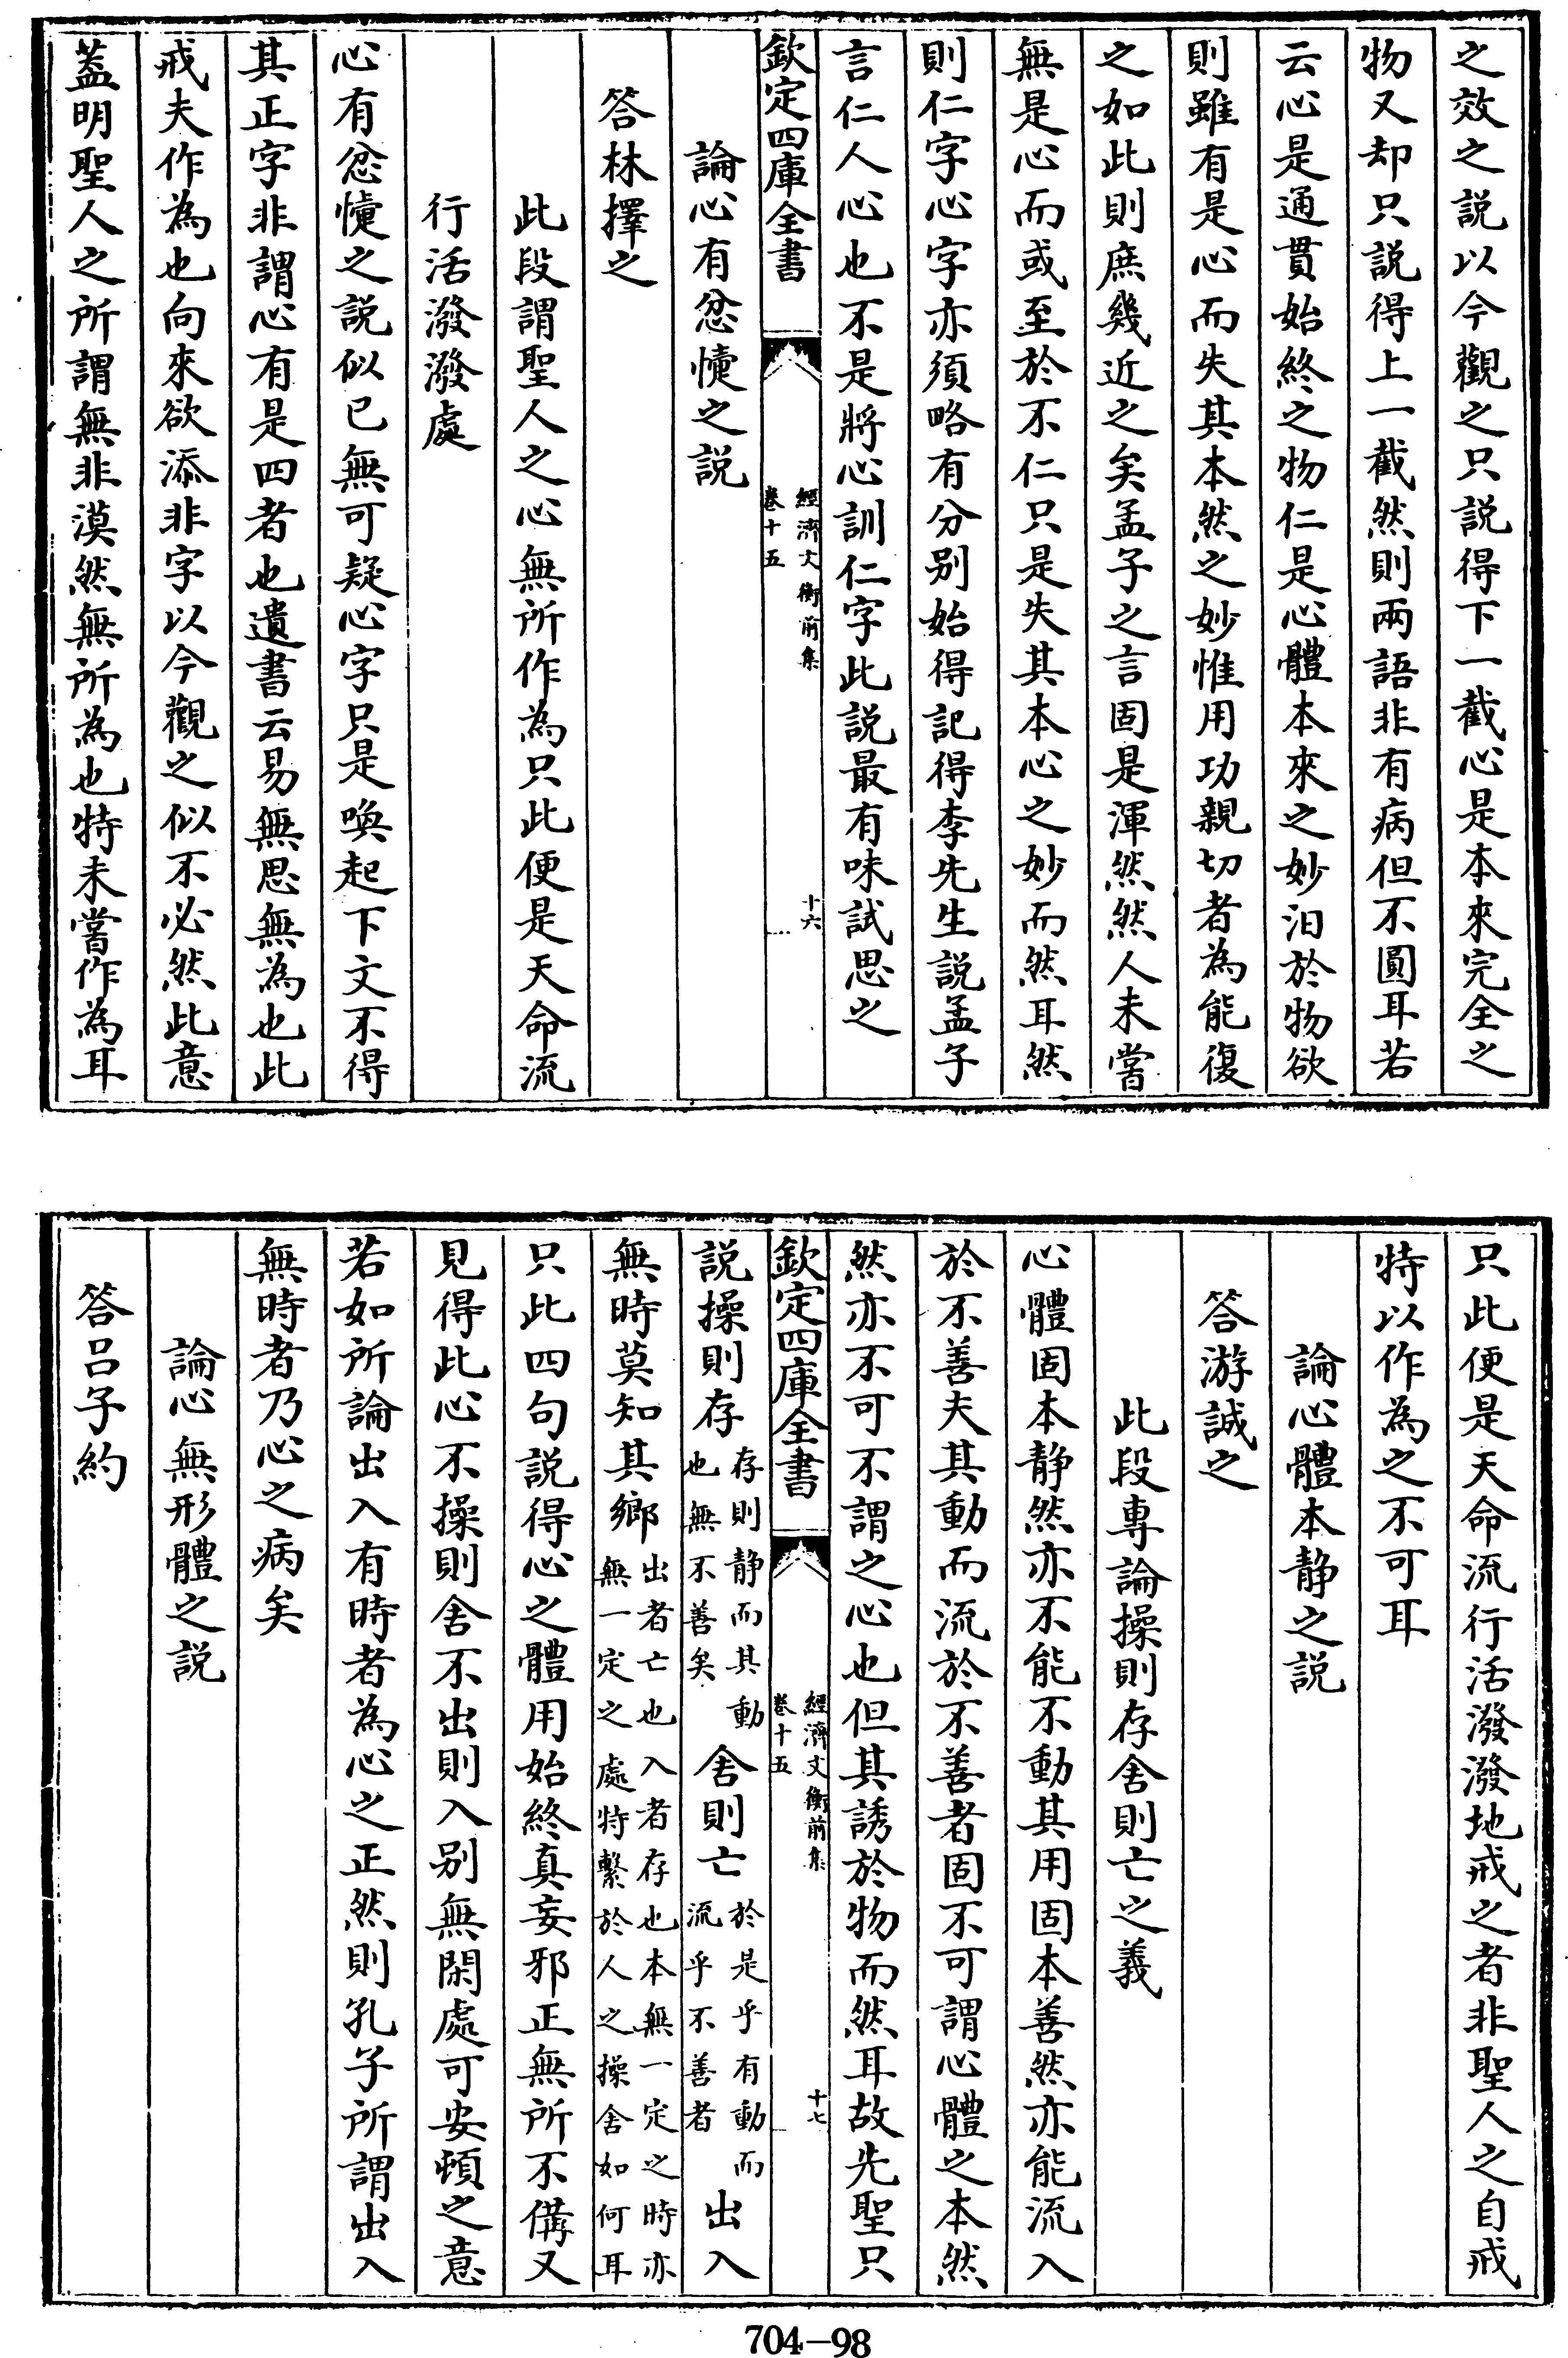 之效之説以今觀之只説得下一截心是本來完全之
物又却只説得上一截然則兩語非有病但不圓耳若
云心是通貫始終之物仁是心體本來之妙汨於物欲
則雖有是心而失其本然之妙惟用功親切者為能復
之如此則庶幾近之矣孟子之言固是渾然然人未嘗
無是心而或至於不仁只是失其本心之妙而然耳然
則仁字心字亦須略有分别始得記得李先生説孟子
言仁人心也不是將心訓仁字此説最有味試思之
欽定四庫全書
經濟文衡前集
卷十五
十六
論心有忿懥之説
答林擇之
此段謂聖人之心無所作為只此便是天命流
行活潑潑處
心有忿懥之説似已無可疑心字只是喚起下文不得
其正字非謂心有是四者也遺書云易無思無為也此
戒夫作為也向來欲添非字以今觀之似不必然此意
蓋明聖人之所謂無非漠然無所為也特未嘗作為耳
只此便是天命流行活潑潑地戒之者非聖人之自戒
特以作為之不可耳
論心體本静之説
答游誠之
此段專論操則存舍則亡之義
心體固本静然亦不能不動其用固本善然亦能流入
於不善夫其動而流於不善者固不可謂心體之本然
然亦不可不謂之心也但其誘於物而然耳故先聖只
欽定四庫全書
經濟文衡前集
卷十五
十七
説操則存存則静而其動也無不善矣舍則亡於是乎有動而流乎不善者出入
無時莫知其鄉出者亡也入者存也本無一定之時亦無一定之處特繫於人之操舍如何耳
只此四句説得心之體用始終真妄邪正無所不備又
見得此心不操則舍不出則入别無閑處可安頓之意
若如所論出入有時者為心之正然則孔子所謂出入
無時者乃心之病矣
論心無形體之説
答呂子約
704-98